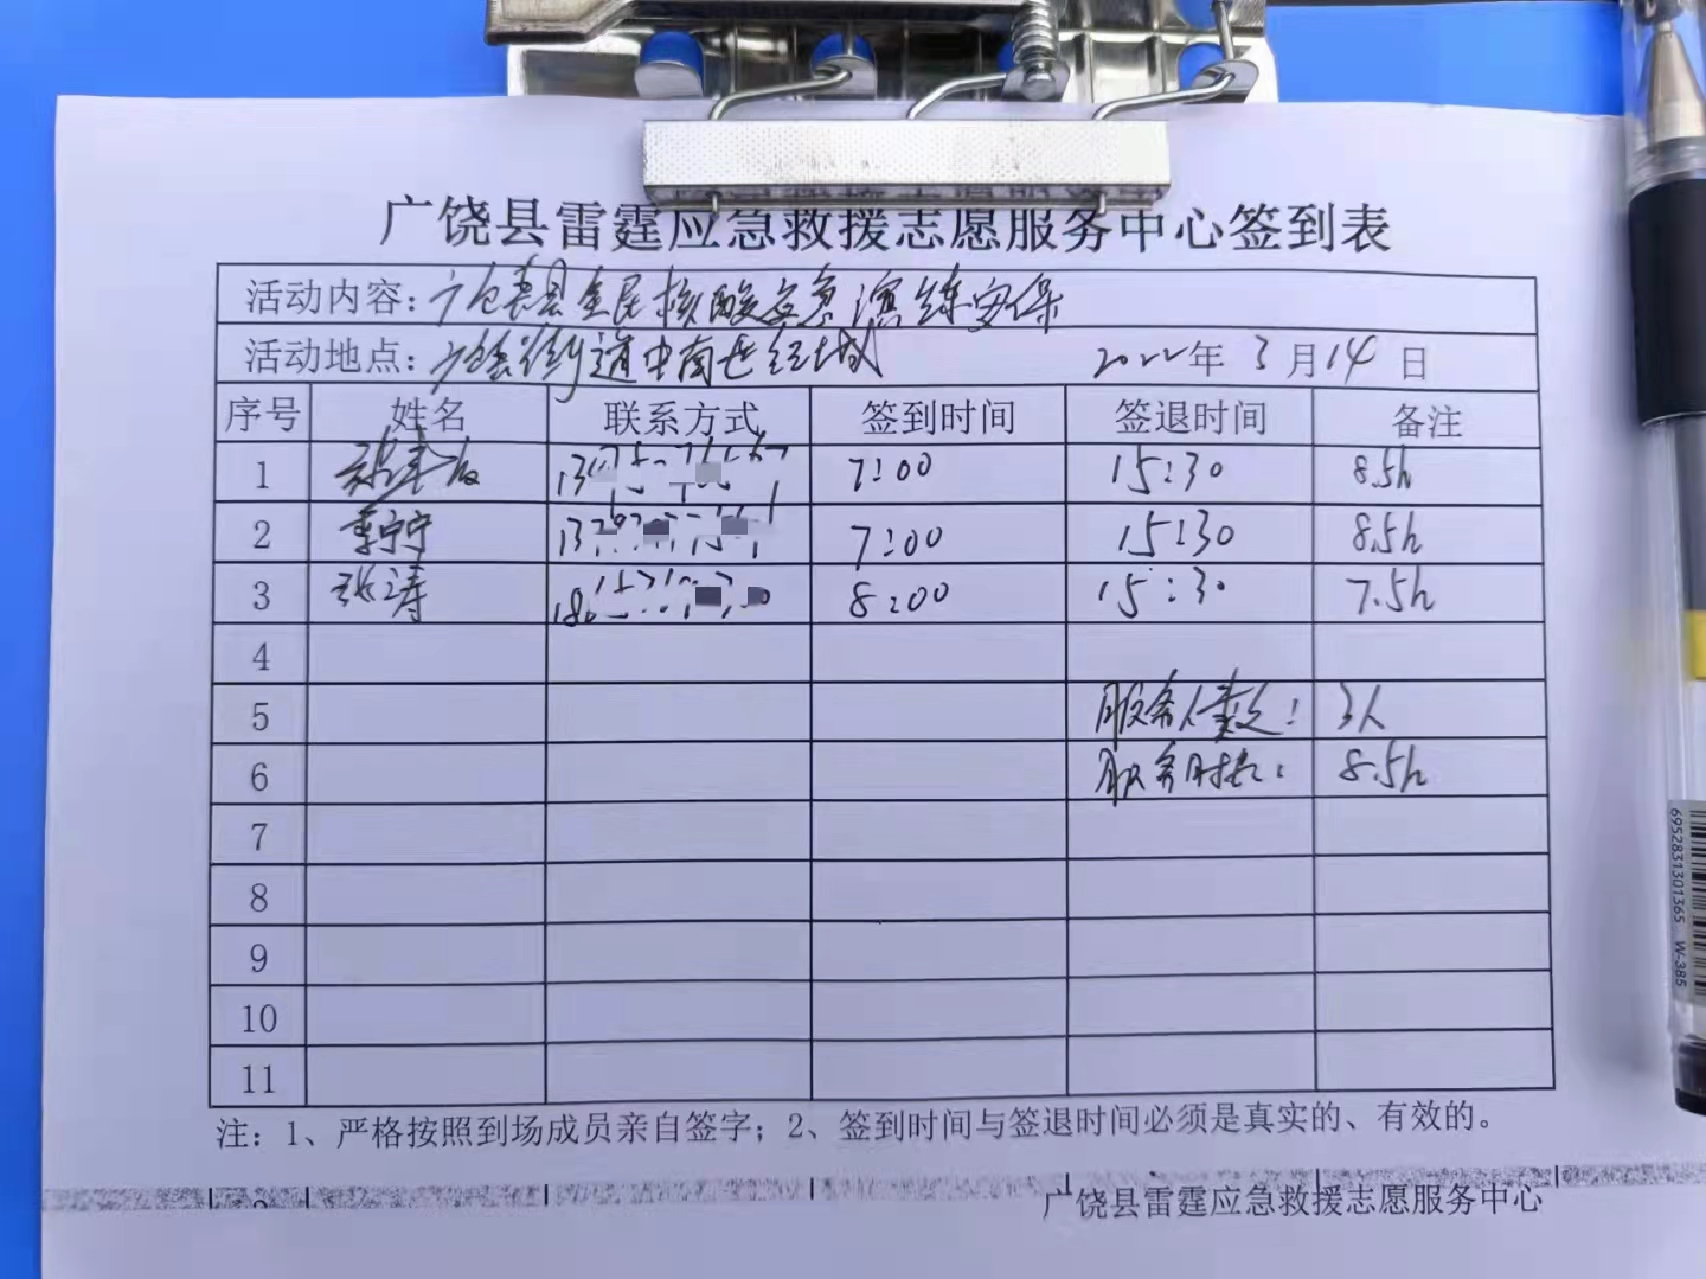 广饶县雷霆应急救援志愿服务中心签到表
活动内容：广饶县全民核酸应急演练安保
活动地点：广饶街道中南世纪城 2022年 3月14日
序号 姓名 联系方式 签到时间 签退时间 备注
1 7:00 15:30 8.5h
2 李宁宁 7:00 15:30 8.5h
3 张涛 8:00 15:30 7.5h
4
5 服务人数: 3人
6 服务时长: 8.5h
7
8
9
10
11
注：1、严格按照到场成员亲自签字；2、签到时间与签退时间必须是真实的、有效的。
广饶县雷霆应急救援志愿服务中心
6952831301365 W-385